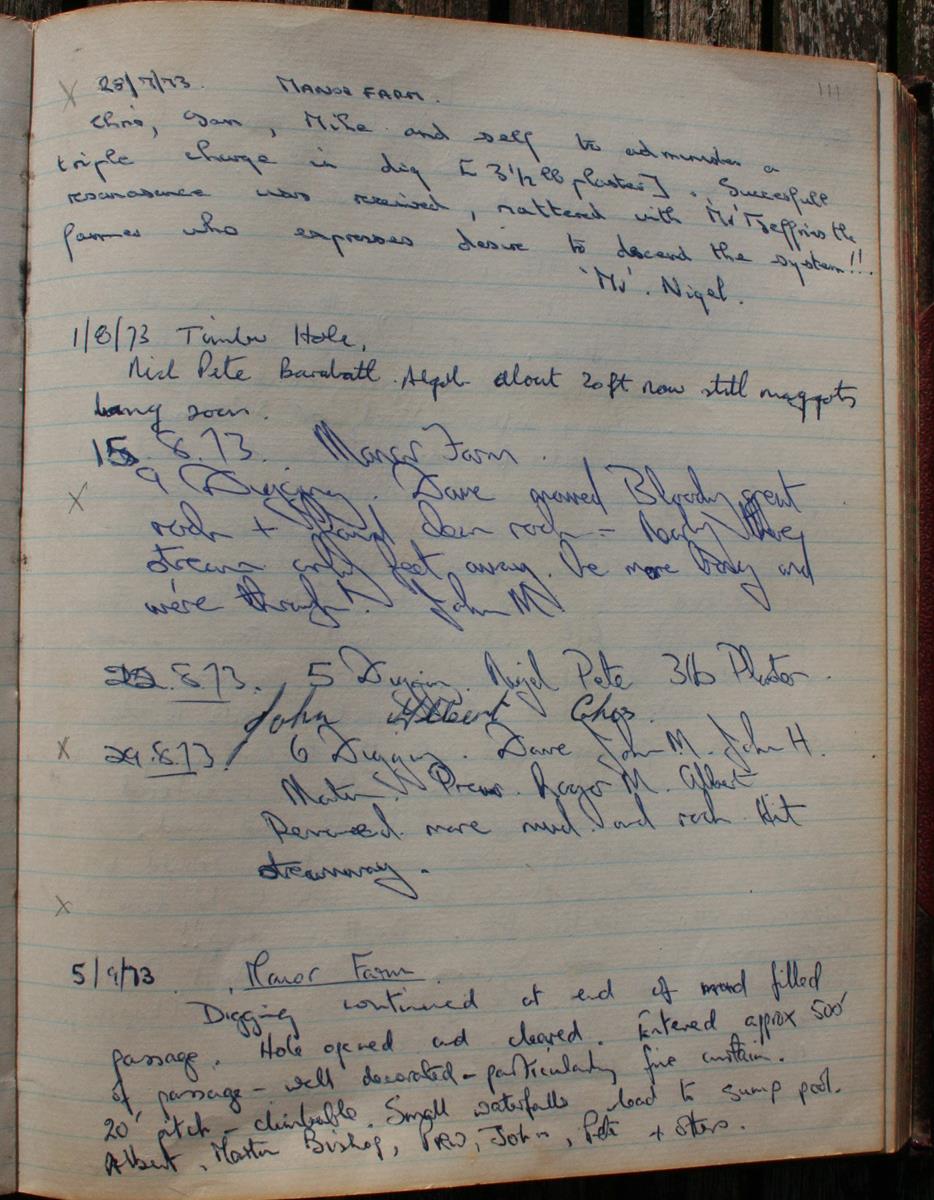 111
25/7/73. MANOR FARM.
Chris, , Mike and self to administer a
triple charge in dig [3½ lb plaster]. Succesfull
resonasence was received, nattered with Mr Jeffries the
farmer who expresses desire to descend the system!!.
'Mr'. Nigel.
1/8/73 Timber Hole,
Pete about 20ft now still maggots
bang soon.
15.8.73. Manor Farm.
9 Digging. Dave Bloody great
rock + down rock =
stream only feet away. more and
we're through! John M
22.8.73. 5 Diggin. Nigel Pete 3lb Plaster.
John Albert Chas.
29.8.73. 6 Digging. Dave John M. John H.
Martin. Prew. Roger M. Albert
Removed more mud and rock Hit
streamway.
5/9/73. Manor Farm
Digging continued at end of mud filled
passage. Hole opened and cleared. Entered approx 500'
of passage - well decorated - particularly fine curtain.
20' pitch - climbable. Small waterfalls lead to sump pool.
Albert, Martin Bishop, PRW, John, Pete + others.